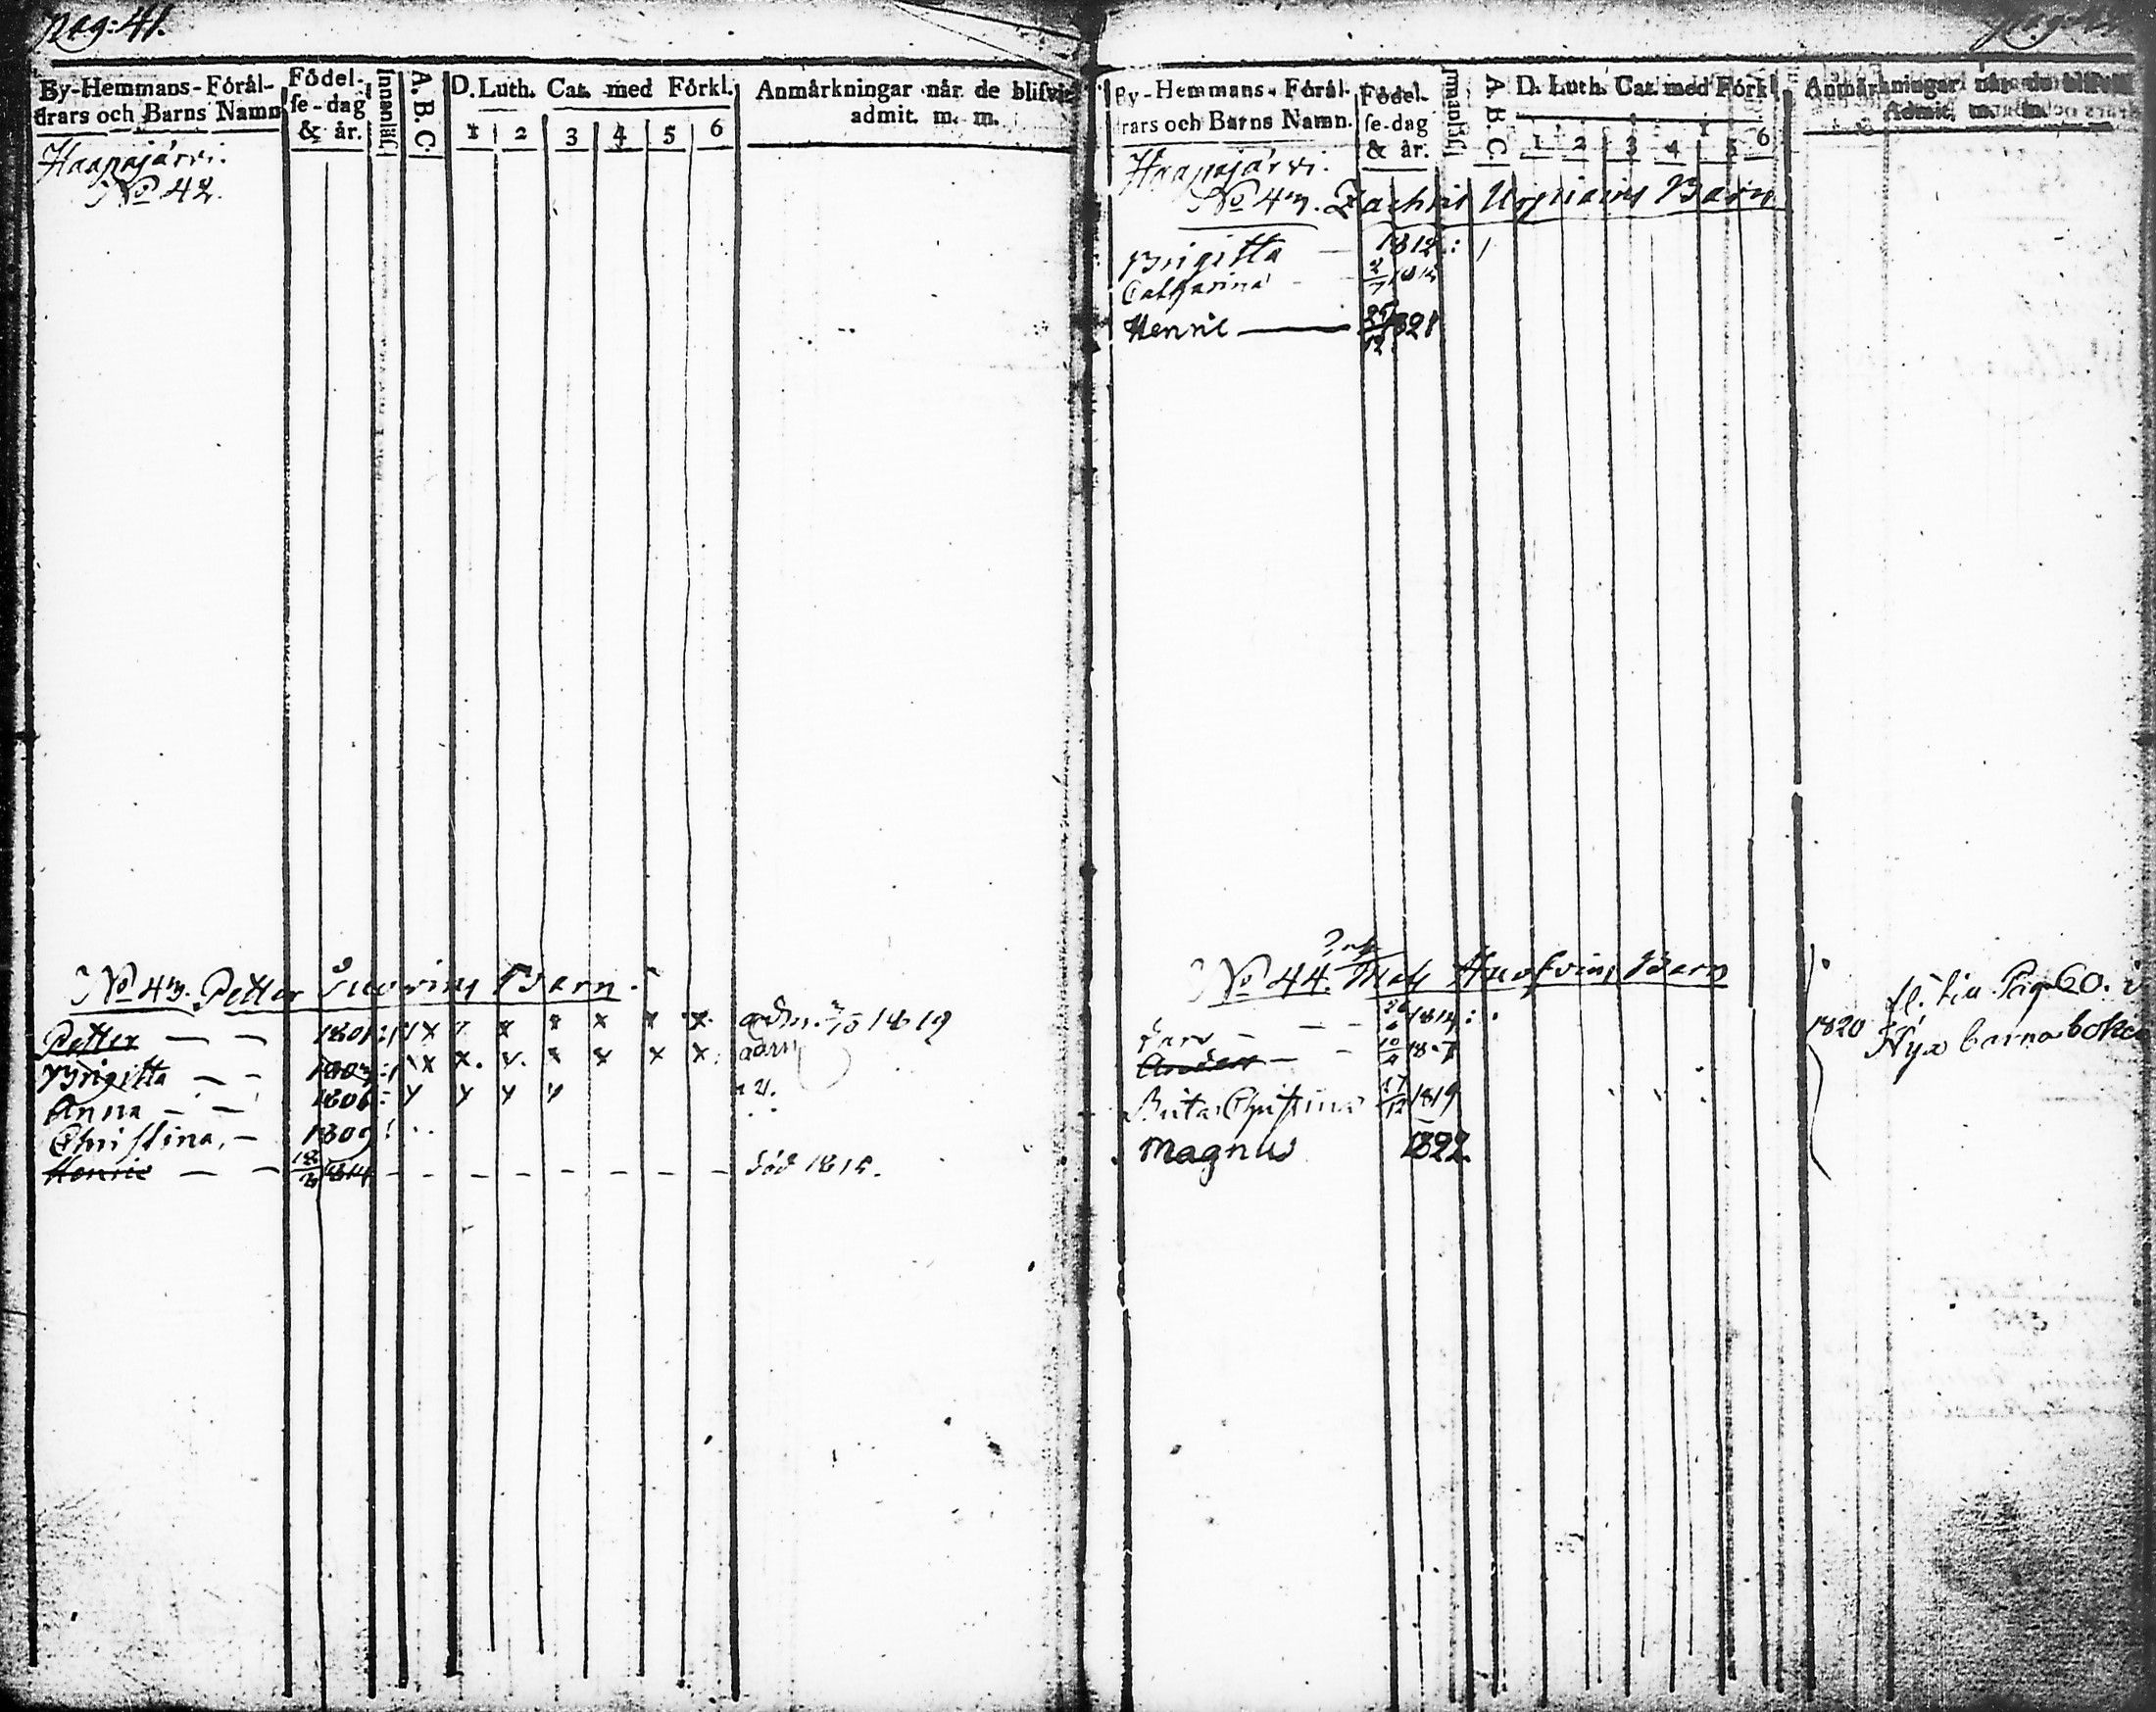 Pag: 41.
By-Hemmans-Föräl-
drars och Barns Namn
Födel-
se-dag
& år.
Innanläs
A. B. C.
D. Luth. Cat. med Förkl.
1 2 3 4 5 6
Anmärkningar när de blifvit
admit. m. m.
Haapajärvi.
No 42.
No 43. Petter Barn.
Petter — — 1801 x x x x x x adm. 1819
Brigitta — — 1803 x x x x x x x adm
Anna — — 1806
Christina, — 1809
Henric — — 18/3 1814 — — — — — — — — död 1815.
By-Hemmans-Föräl-
drars och Barns Namn.
Födel-
se-dag
& år.
Innanläs
A. B. C.
D. Luth. Cat. med Förkl.
1 2 3 4 5 6
Anmärkningar när de blifvit
Admit. m. m.
Haapajärvi.
No 43. Zachris Barn
Brigitta — 1812
Catharina —
Henric — 25/12 1821
No 44. Mats Barn
Lars — — —
Anders — —
Brita Christina 17/12 1819
Magnus 1822.
1820
fl. till Pag 60. i
Nya barnaboken